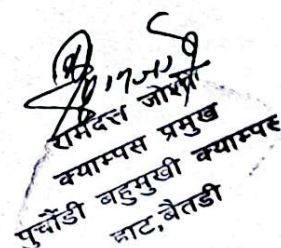 रामदत्त जोशी
क्याम्पस प्रमुख
पुर्चौडी बहुमुखी क्याम्पस
हाट, बैतडी